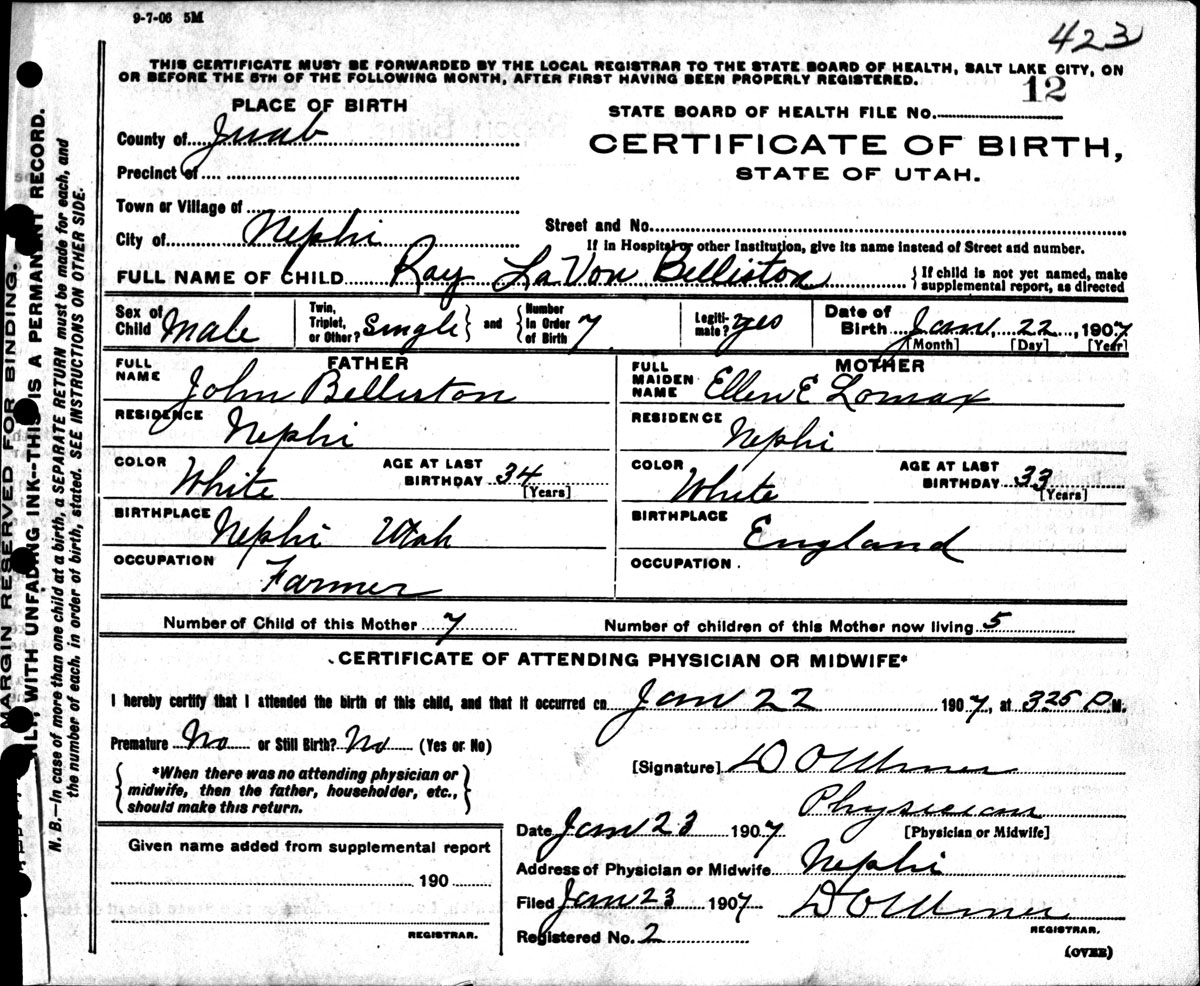 9-7-06 5M
423
THIS CERTIFICATE MUST BE FORWARDED BY THE LOCAL REGISTRAR TO THE STATE BOARD OF HEALTH, SALT LAKE CITY, ON
OR BEFORE THE 5TH OF THE FOLLOWING MONTH, AFTER FIRST HAVING BEEN PROPERLY REGISTERED.
PLACE OF BIRTH
County of Juab
Precinct of
Town or Village of
City of Nephi
12
STATE BOARD OF HEALTH FILE NO.
CERTIFICATE OF BIRTH,
STATE OF UTAH.
Street and No.
If in Hospital or other Institution, give its name instead of Street and number.
FULL NAME OF CHILD Ray LaVon Belliston {If child is not yet named, make
supplemental report, as directed
Sex of Child Male
Twin, Triplet, or Other? Single} and {Number in Order of Birth 7
Legitimate? yes
Date of Birth Jan, 22, 1907
[Month] [Day] [Year]
FATHER
FULL NAME John Belliston
RESIDENCE Nephi
COLOR White AGE AT LAST BIRTHDAY 34 [Years]
BIRTHPLACE Nephi Utah
OCCUPATION Farmer
MOTHER
FULL MAIDEN NAME Ellen E Lomax
RESIDENCE Nephi
COLOR White AGE AT LAST BIRTHDAY 33 [Years]
BIRTHPLACE England
OCCUPATION.
Number of Child of this Mother 7 Number of children of this Mother now living 5
CERTIFICATE OF ATTENDING PHYSICIAN OR MIDWIFE*
I hereby certify that I attended the birth of this child, and that it occurred on Jan 22 1907, at 325 P.M.
Premature No or Still Birth? No (Yes or No)
{*When there was no attending physician or
midwife, then the father, householder, etc.,
should make this return.}
[Signature]
Physician
[Physician or Midwife]
Date Jan 23 1907
Address of Physician or Midwife Nephi
Filed Jan 23 1907
REGISTRAR.
Registered No. 2
(OVER)
Given name added from supplemental report
190
REGISTRAR.
MARGIN RESERVED FOR BINDING.
ONLY, WITH UNFADING INK--THIS IS A PERMANENT RECORD.
N. B.—In case of more than one child at a birth, a SEPARATE RETURN must be made for each, and
the number of each, in order of birth, stated. SEE INSTRUCTIONS ON OTHER SIDE.